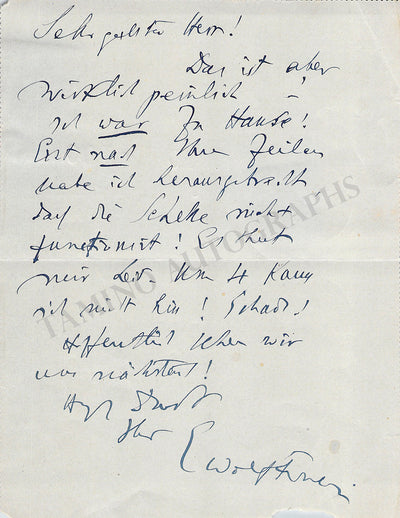 Sehr geehrter Herr!
Das ist aber
wirklich peinlich –
ich war zu Hause!
Erst nach Ihren Zeilen
habe ich herausgebracht
daß die Schelle nicht
funktioniert! Es tut
mir leid. Um 4 kann
ich nicht hin! Schade!
Hoffentlich sehen wir
uns nächstens!
Ihr
E Wolf-Ferrari
TAMINO AUTOGRAPHS